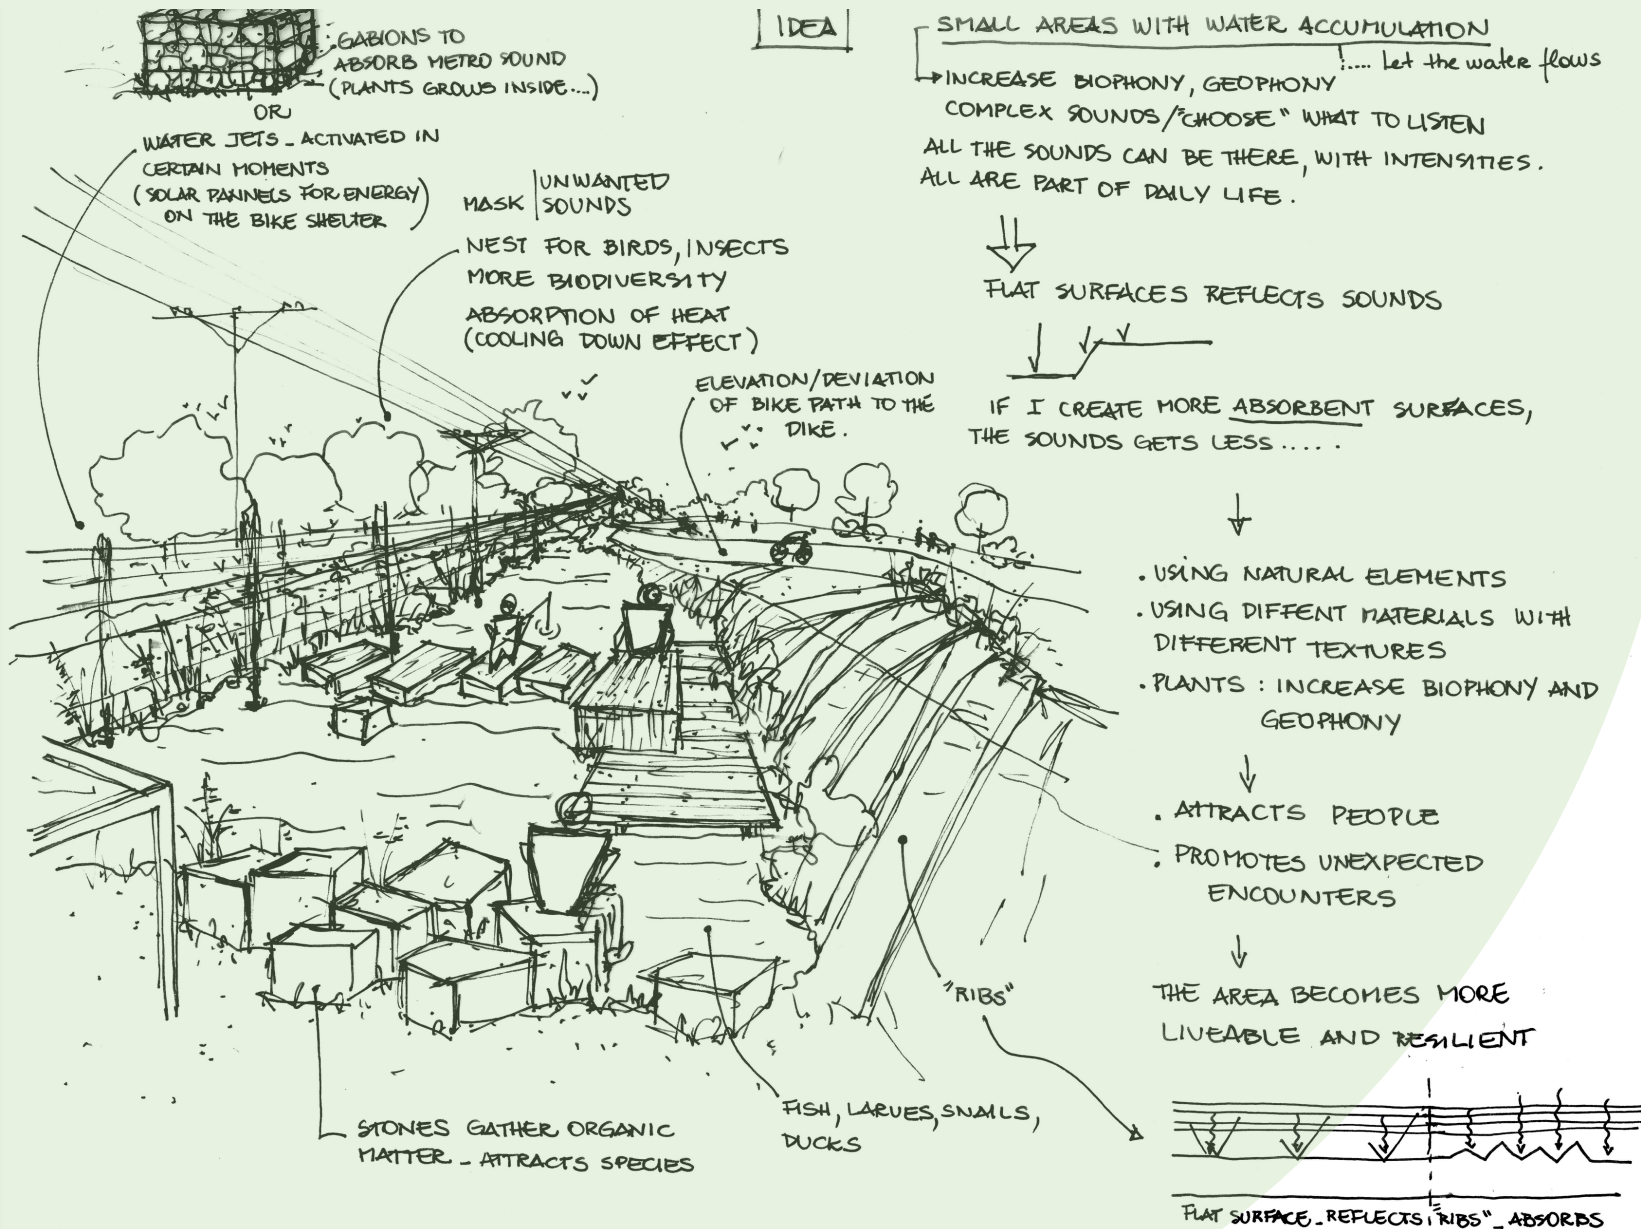 GABIONS TO
ABSORB METRO SOUND
(PLANTS GROWS INSIDE...)
OR
WATER JETS_ACTIVATED IN
CERTAIN MOMENTS
(SOLAR PANNELS FOR ENERGY)
ON THE BIKE SHELTER
MASK | UNWANTED
SOUNDS
NEST FOR BIRDS, INSECTS
MORE BIODIVERSITY
ABSORPTION OF HEAT
(COOLING DOWN EFFECT)
ELEVATION/DEVIATION
OF BIKE PATH TO THE
DIKE.
IDEA
SMALL AREAS WITH WATER ACCUMULATION
.... Let the water flows
INCREASE BIOPHONY, GEOPHONY
COMPLEX SOUNDS/"CHOOSE" WHAT TO LISTEN
ALL THE SOUNDS CAN BE THERE, WITH INTENSITIES.
ALL ARE PART OF DAILY LIFE.
FLAT SURFACES REFLECTS SOUNDS
IF I CREATE MORE ABSORBENT SURFACES,
THE SOUNDS GETS LESS.....
. USING NATURAL ELEMENTS
. USING DIFFENT MATERIALS WITH
DIFFERENT TEXTURES
. PLANTS : INCREASE BIOPHONY AND
GEOPHONY
. ATTRACTS PEOPLE
. PROMOTES UNEXPECTED
ENCOUNTERS
THE AREA BECOMES MORE
LIVEABLE AND RESILIENT
"RIBS"
FISH, LARVES, SNAILS,
DUCKS
STONES GATHER ORGANIC
MATTER_ATTRACTS SPECIES
FLAT SURFACE_REFLECTS
"RIBS"_ABSORBS